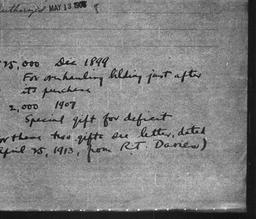 MAY 13 1908
25,000 Dec 1899
For overhauling blding just after
its purchase
2,000 1907
Special gift for deficit
For these two gifts see letter, dated
April 25, 1913, from R.T. Davies)